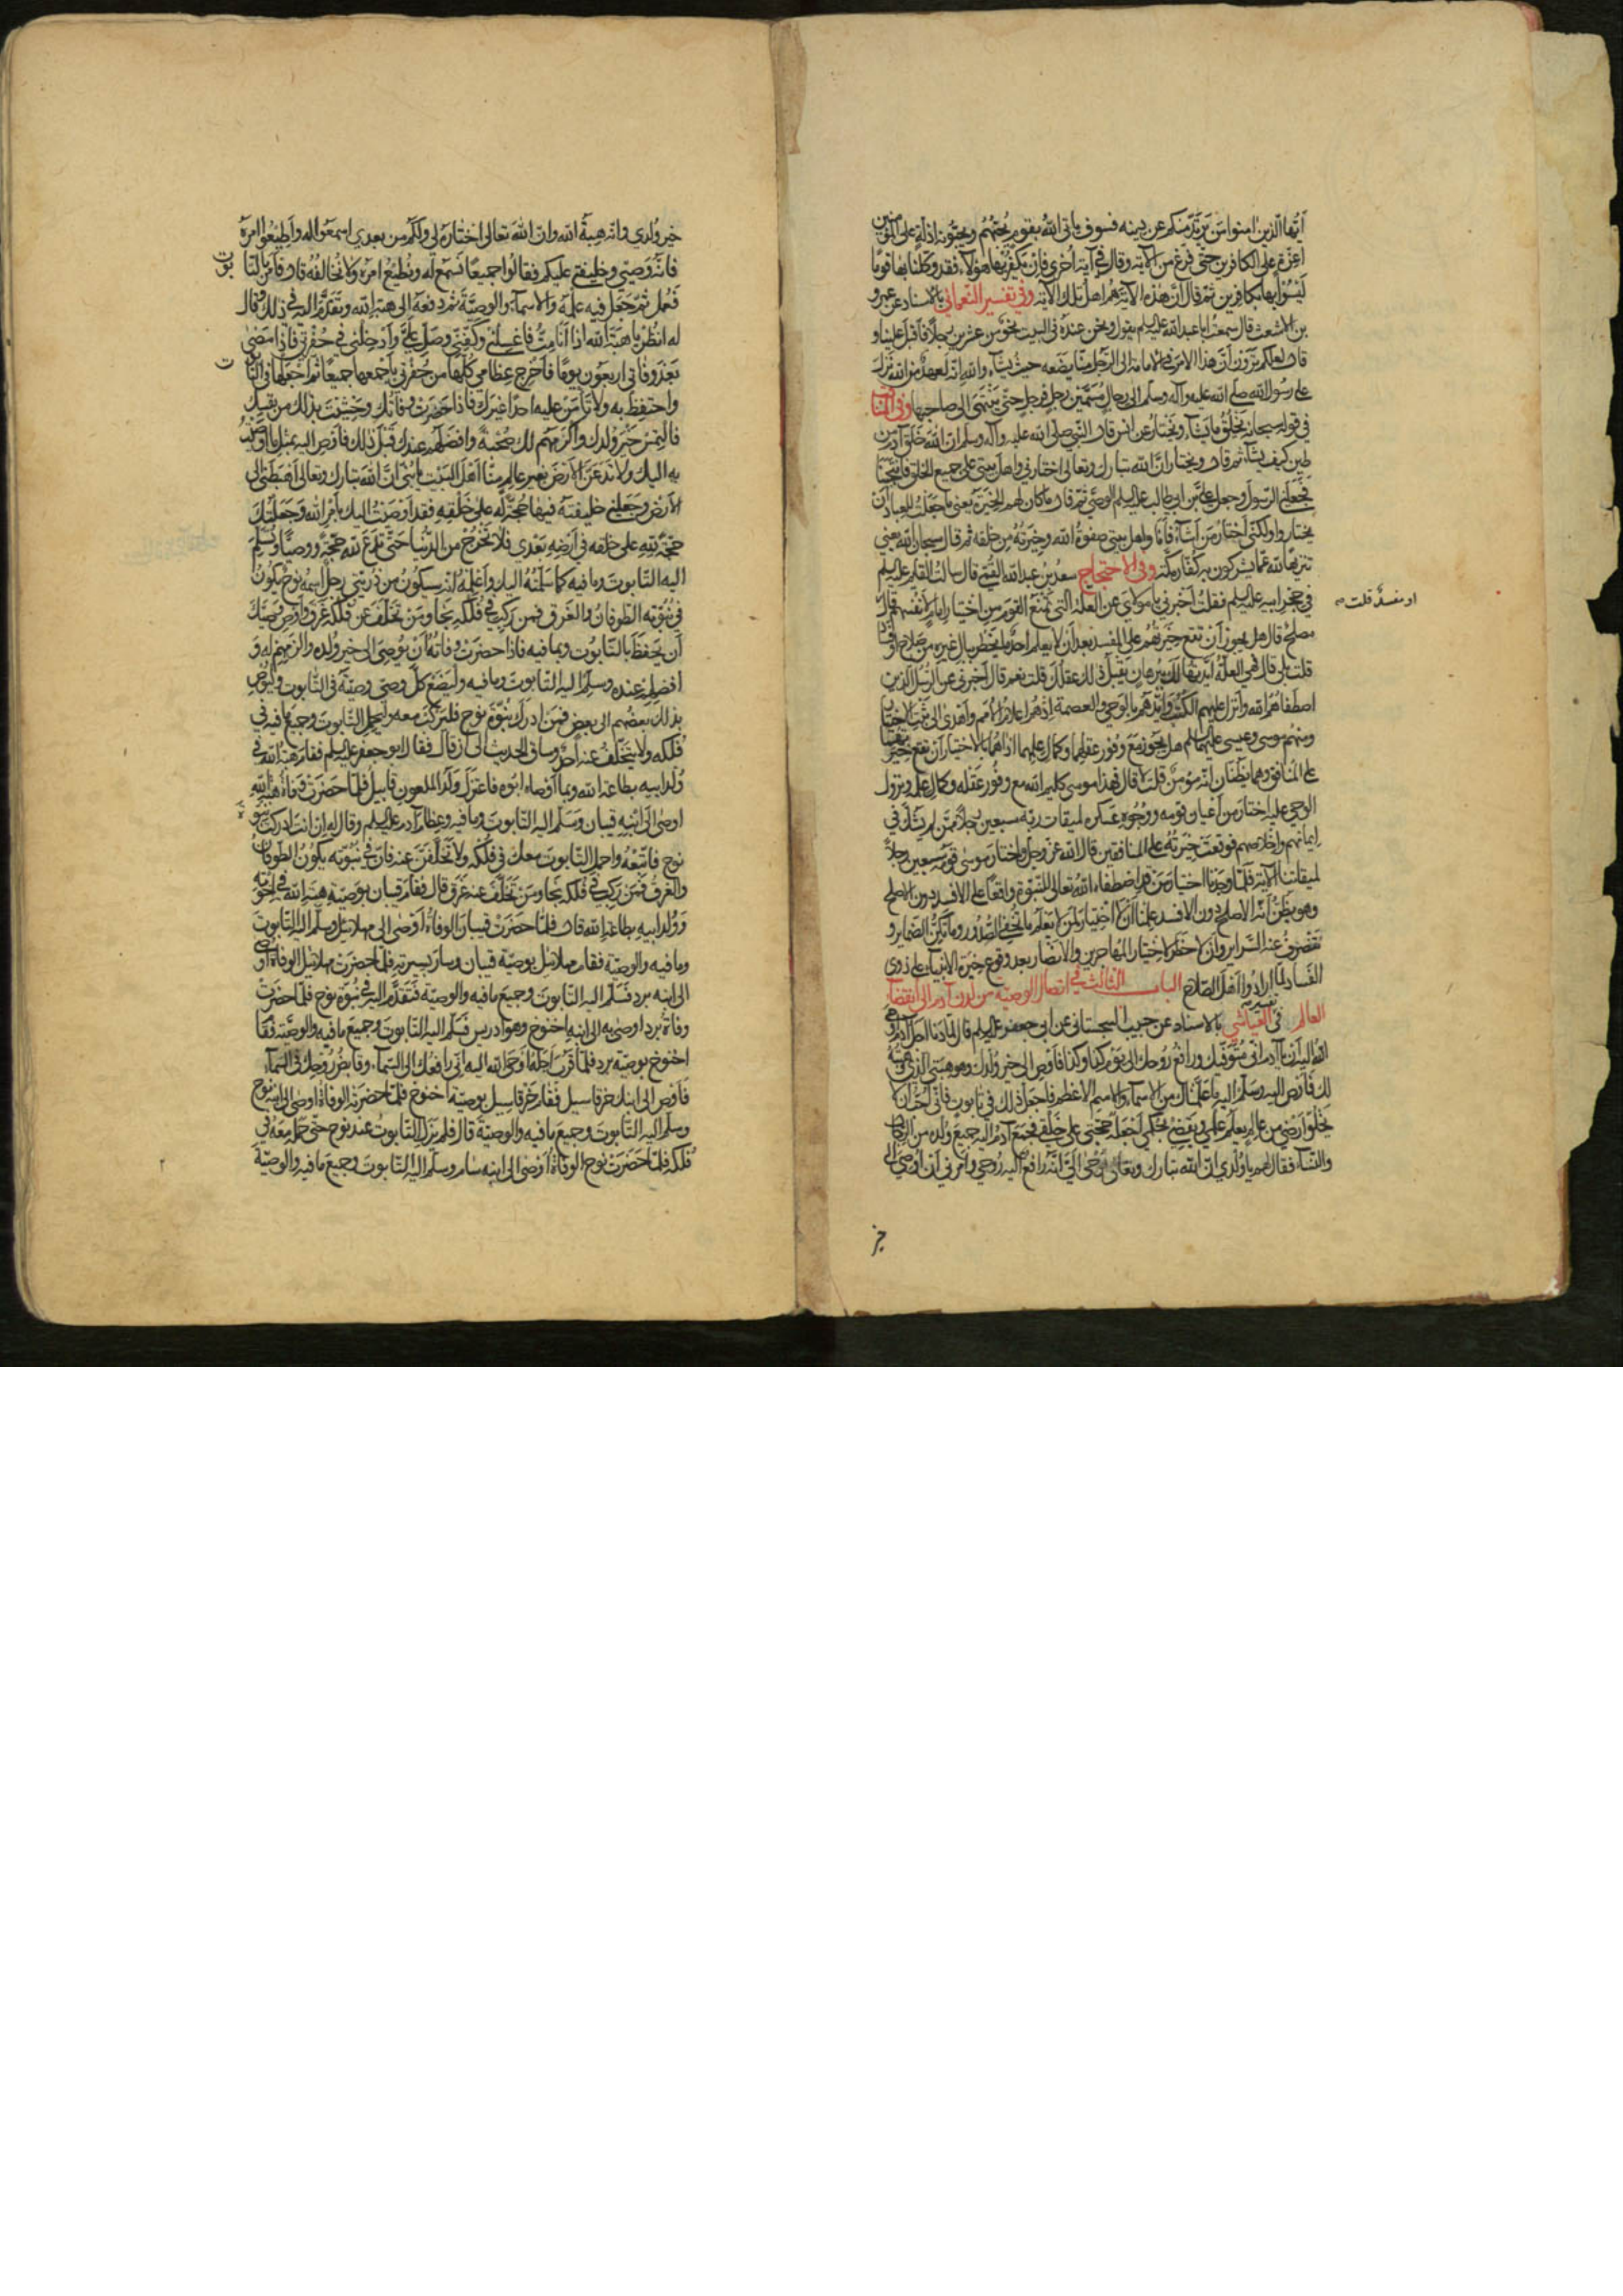 ايّها الّذين امنوا من يرتدّ منكم عن دينه فسوف يأتي الله بقوم يحبّهم ويحبّونه اذلّة على المؤمنين
اعزّة على الكافرين حتى فرغ من الآية وقال في آية اخرى فان يكفر بها هؤلاء فقد وكّلنا بها قومًا
ليسوا بها بكافرين ثم قال انّ هذه الآية هم اهل تلك الآية وفي تفسير النعماني بالاسناد عن عمرو
بن الاشعث قال سمعت ابا عبد الله عليه السلم يقول ونحن عنده في البيت نحو من عشرين رجلاً فاقبل علينا و
قال لعلكم ترون انّ هذا الامر في الامامة الى الرّجل منّا يضعه حيث يشاء والله انّه لعهد من الله نزل
على رسول الله صلى الله عليه وآله وسلم الى رجال مسمّين رجل فرجل حتى ينتهى الى صاحبها وفي المناقب
في قوله سبحانه يخلق ما يشاء ويختار عن انس قال النّبي صلى الله عليه وآله وسلم ان الله خلق آدم من
طين كيف يشآء ثم قال ويختار انّ الله تبارك وتعالى اختارني واهل بيتي على جميع الخلق فانتجبنا
فجعلني الرّسول وجعل عليّ بن ابي طالب عليه السلم الوصيّ ثم قال ما كان لهم الخيرة يعني ما جعلت للعباد ان
يختاروا ولكنّى اختار من اشآء فانا واهل بيتي صفوة الله وخيرته من خلقه ثم قال سبحان الله يعني
تنزيها لله عمّا يشركون به كفّار مكة وفي الاحتجاج سعد بن عبد الله القمّي قال سالت القائم عليه السلم
في حجر ابيه عليه السلم فقلت اخبرني يا مولاي عن العلّة التي تمنع القوم من اختيار امام لانفسهم قال
مصلح قال هل يجوز ان تقع خيرتهم على المفسد بعد ان لا يعلم احد ما يخطر ببال غيره من صلاح او فساد
او مفسد قلت صح
قلت بلى قال فهي العلّة ايّدتها لك ببرهان يقبل ذلك عقلك قلت نعم قال اخبرني عن الرّسل الذين
اصطفاهم الله وانزل عليهم الكتب وايّدهم بالوحي والعصمة اذ هم اعلام الامم واهدى الى ثبت الاختيار
ومنهم موسى وعيسى عليهما السلم هل يجوز مع وفور عقلهما وكمال علمهما اذا همّا بالاختيار ان تقع خيرتهما
على المنافق وهما يظنّان انّه مؤمن قلت لا قال فهذا موسى كليم الله مع وفور عقله وكمال علمه ونزول
الوحي عليه اختار من اعيان قومه ووجوه عسكره لميقات ربّه سبعين رجلاً ممّن لم يشكّ في
ايمانهم واخلاصهم فوقعت خيرته على المنافقين قال الله عزّ وجل واختار موسى قومه سبعين رجلاً
لميقاتنا الآية فلمّا وجدنا اختيار من قد اصطفاه الله تعالى للنبّوة واقعًا على الافسد دون الاصلح
وهو يظنّ انّه الاصلح دون الافسد علمنا ان لا اختيار لمن لا يعلم ما تخفي الصّدور وما تكنّ الضماير و
تتصرف عنه السّراير وان لا خطر لاختيار المهاجرين والانصار بعد وقوع خيرة الانبياء على ذوي
الفساد لمّا ارادوا اهل الصّلاح الباب الثالث في اتصال الوصيّة من لدن آدم الى انقضاء
العالم في تفسير العياشي بالاسناد عن حبيب السجستاني عن ابى جعفر عليه السلم قال لمّا دنا اجل آدم اوحى
الله اليه ان يا آدم انى متوفّيك ورافع روحك الىّ يوم كذا وكذا فاوص الى خير ولدك وهو هبتي الذي وهبته
لك فاوص اليه وسلّم اليه ما علّمناك من الاسماء والاسم الاعظم فاجعل ذلك في تابوت فانّى احبّ ان لا
يخلو ارضي من عالم يعلم علمي ويقضي بحكمي اجعله حجّتي على خلقي فجمع آدم اليه جميع ولده من الرجال
والنساء فقال لهم يا ولدي ان الله تبارك وتعالى اوحى اليّ انّه رافع اليه روحي وامرني ان اوصي الى
خير
خير ولدي وانّه هبة الله وان الله تعالى اختاره لى ولكم من بعدي اسمعوا له واطيعوا امره
فانّه وصيّي وخليفتي عليكم فقالوا جميعًا نسمع له ونطيع امره ولا نخالفه قال فامر بالتّابوت
فعمل ثم جعل فيه علمه والاسمآء والوصيّة ثم دفعه الى هبة الله وتقدّم اليه في ذلك وقال
له انظر يا هبة الله اذا انا متّ فاغسلني وكفّني وصلّ عليّ وادخلني في حفرتي فاذا مضى
بعد وفاتي اربعون يومًا فاخرج عظامي كلّها من حفرتي فاجمعها جميعًا ثم اجعلها في التّابوت
واحتفظ به ولا تأمنن عليه احدًا غيرك فاذا حضرت وفاتك وخشيت بذلك من نفسك
فالتمس خير ولدك والزمهم لك صحبة وافضلهم عندك قبل ذلك فاوص اليه بمثل ما اوصيت
به اليك ولا تدعنّ الارض بغير عالم منّا اهل البيت يا بنىّ انّ الله تبارك وتعالى اهبطني الى
الارض وجعلني خليفته فيها حجّة له على خلقه فقد اوصيت اليك بامر الله وجعلتك
حجّة لله على خلقه في ارضه بعدي فلا تخرج من الدّنيا حتى تدع لله حجّة ووصيًّا وتسلّم
اليه التّابوت وما فيه كما سلّمته اليك واعلمه انّه سيكون من ذريّتي رجل اسمه نوح يكون
في نبوّته الطوفان والغرق فمن ركب في فلكه نجا ومن تخلّف عن فلكه غرق واوص وصيّك
ان يحفظ بالتّابوت وبما فيه فاذا حضرت وفاته ان يوصى الى خير ولده والزمهم له و
افضلهم عنده وسلّم اليه التّابوت وما فيه وليضع كلّ وصيّ وصيّته في التّابوت وليوص
بذلك بعضهم الى بعض فمن ادرك نبوّة نوح فليركب معه وليحمل التّابوت وجميع ما فيه في
فلكه ولا يتخلّف عنه احد وساق الحديث الى ان قال فقال ابو جعفر عليه السلم فقام هبة الله في
ولد ابيه بطاعة الله وبما اوصاه ابوه فاعتزل ولد الملعون قابيل فلمّا حضرت وفاة هبة الله
اوصى الى ابنه قينان وسلّم اليه التّابوت وما فيه وعظام آدم عليه السلم وقال له ان انت ادركت نبوّة
نوح فاتّبعه واحمل التّابوت معك في فلكه ولا تخلّفنّ عنه فان في نبوّته يكون الطّوفان
والغرق فمن ركب في فلكه نجا ومن تخلّف عنه غرق قال فقام قينان بوصيّة هبة الله في اخوته
وولد ابيه بطاعة الله قال فلمّا حضرت قينان الوفاة اوصى الى مهلائيل وسلّم اليه التّابوت
وما فيه والوصيّة فقام مهلائيل بوصيّة قينان وسار بسيرته فلمّا حضرت مهلائيل الوفاة اوصى
الى ابنه برد فسلّم اليه التّابوت وجميع ما فيه والوصيّة فتقدّم اليه في نبوّة نوح فلمّا حضرت
وفاة برد اوصى به الى ابنه اخنوخ وهو ادريس فسلّم اليه التّابوت وجميع ما فيه والوصيّة فقام
اخنوخ بوصيّة برد فلمّا قرب اجله اوحى الله اليه انّي رافعك الى السّماء وقابض روحك في السّمآء
فاوص الى ابنك خرقاسيل فقام خرقاسيل بوصيّة اخنوخ فلمّا حضرته الوفاة اوصى الى ابنه نوح
وسلّم اليه التّابوت وجميع ما فيه والوصيّة قال فلم يزل التّابوت عند نوح حتى حمله معه في
فلكه فلمّا حضرت نوح الوفاة اوصى الى ابنه سام وسلّم اليه التّابوت وجميع ما فيه والوصيّة